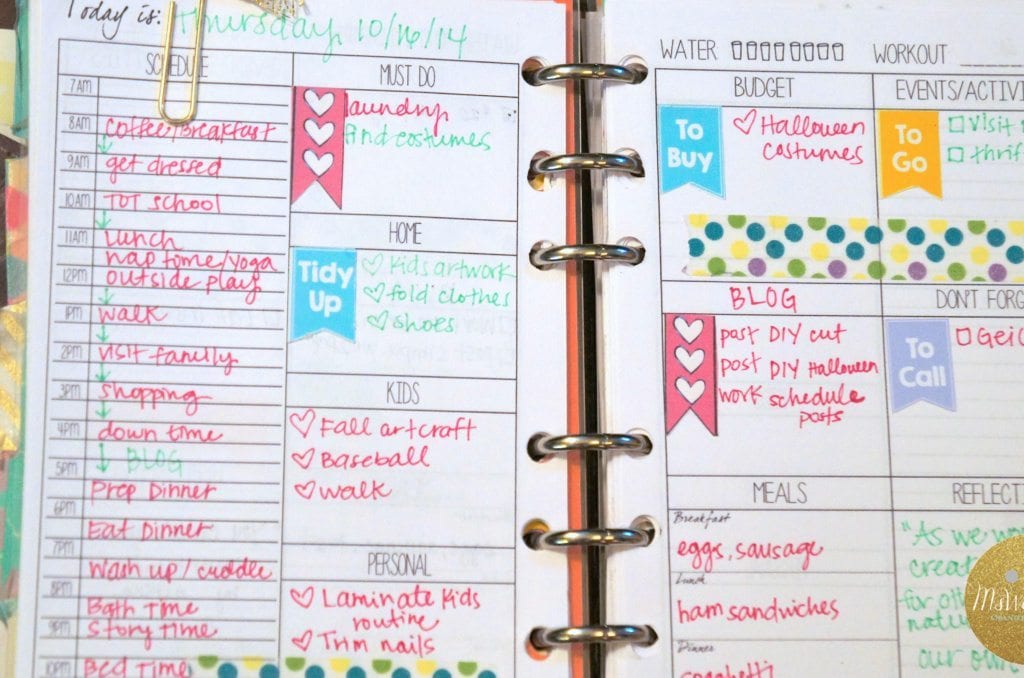 Today is: Thursday 10/16/14
SCHEDULE
7AM
8AM coffee/Breakfast
9AM get dressed
10AM TOT school
11AM Lunch
nap time/yoga
12PM outside play
1PM walk
2PM visit family
3PM shopping
4PM down time
BLOG
5PM
Prep Dinner
6PM
Eat Dinner
7PM
Wash up / cuddle
8PM
Bath Time
9PM Story Time
10PM Bed Time
MUST DO
laundry
find costumes
HOME
Tidy
Up
Kids artwork
fold clothes
shoes
KIDS
Fall artcraft
Baseball
walk
PERSONAL
Laminate Kids
routine
Trim nails
WATER WORKOUT
BUDGET
To
Buy
Halloween
costumes
EVENTS/ACTIVI
To
Go
visit
thrif
BLOG
post DIY cut
post DIY Halloween
work schedule
posts
DON'T FORG
To
Call
Geic
MEALS
Breakfast
eggs, sausage
Lunch
ham sandwiches
Dinner
spaghetti
REFLECT
"As we wo
creat
for oth
natu
our own